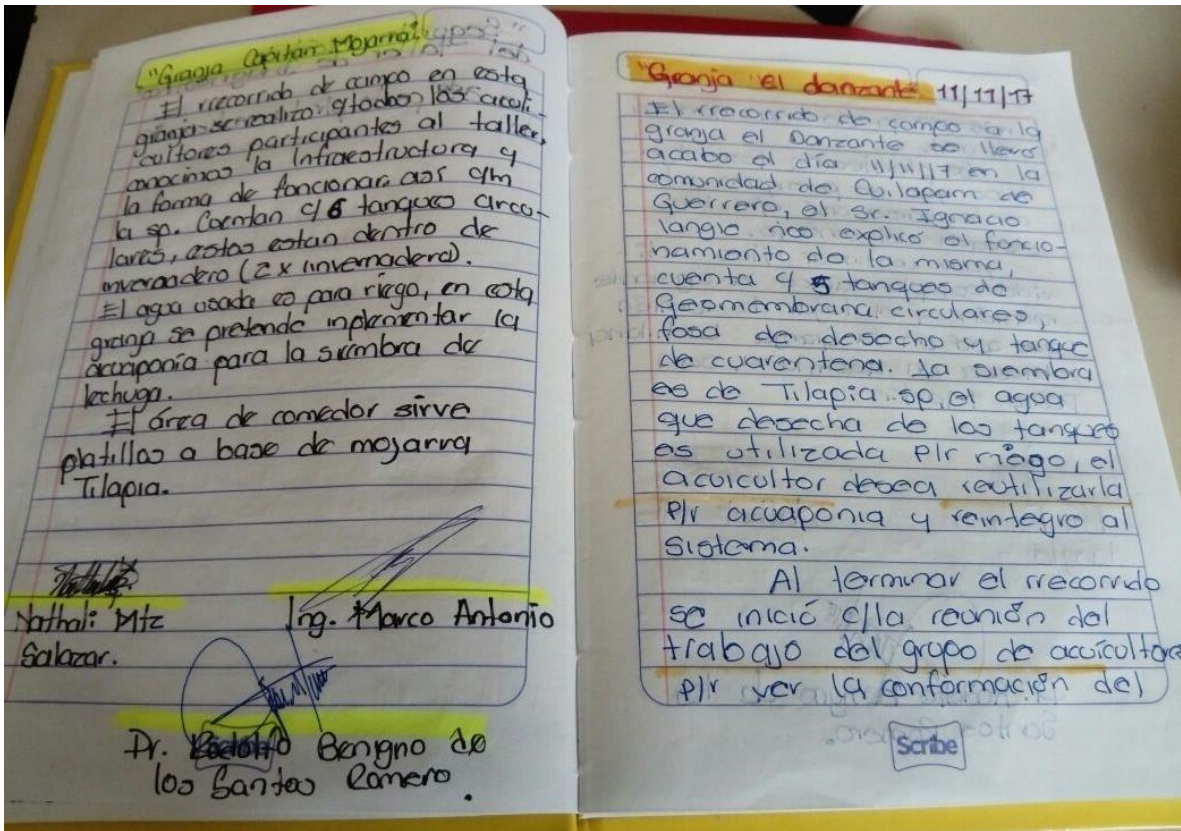 "Granja Capitán Mojarra"
El rrecorrido de campo en esta
granja se realizo todos los acui-
cultores participantes al taller,
conocimos la Infraestructura y
la forma de funcionar, así
la sp. Cuentan c/ 6 tanques circu-
lares, estos estan dentro de
invernadero (2 x invernadero).
El agua usada es para riego, en esta
granja se pretende inplementar la
acuaponía para la siembra de
lechuga.
El área de comedor sirve
platillos a base de mojarra
Tilapia.
Nathali Mtz
Salazar.
Ing. Marco Antonio
Dr. Rodolfo Benigno de
los Santos Romero.
"Granja el danzante" 11/11/17
El rrecorrido de campo a la
granja el Danzante se llevó
acabo el día 11/11/17 en la
comunidad de Cuilapam de
Guerrero, el Sr. Ignacio
langle nos explicó el funcio-
namiento de la misma,
cuenta c/ 5 tanques de
Geomembrana circulares,
fosa de desecho y tanque
de cuarentena. La siembra
es de Tilapia sp, el agua
que desecha de los tanques
es utilizada p/r riego, el
acuicultor desea reutilizarla
p/r acuaponia y reintegro al
sistema.
Al terminar el rrecorrido
se inició c/la reunión del
trabajo del grupo de acuicultores
p/r ver la conformación del
Scribe